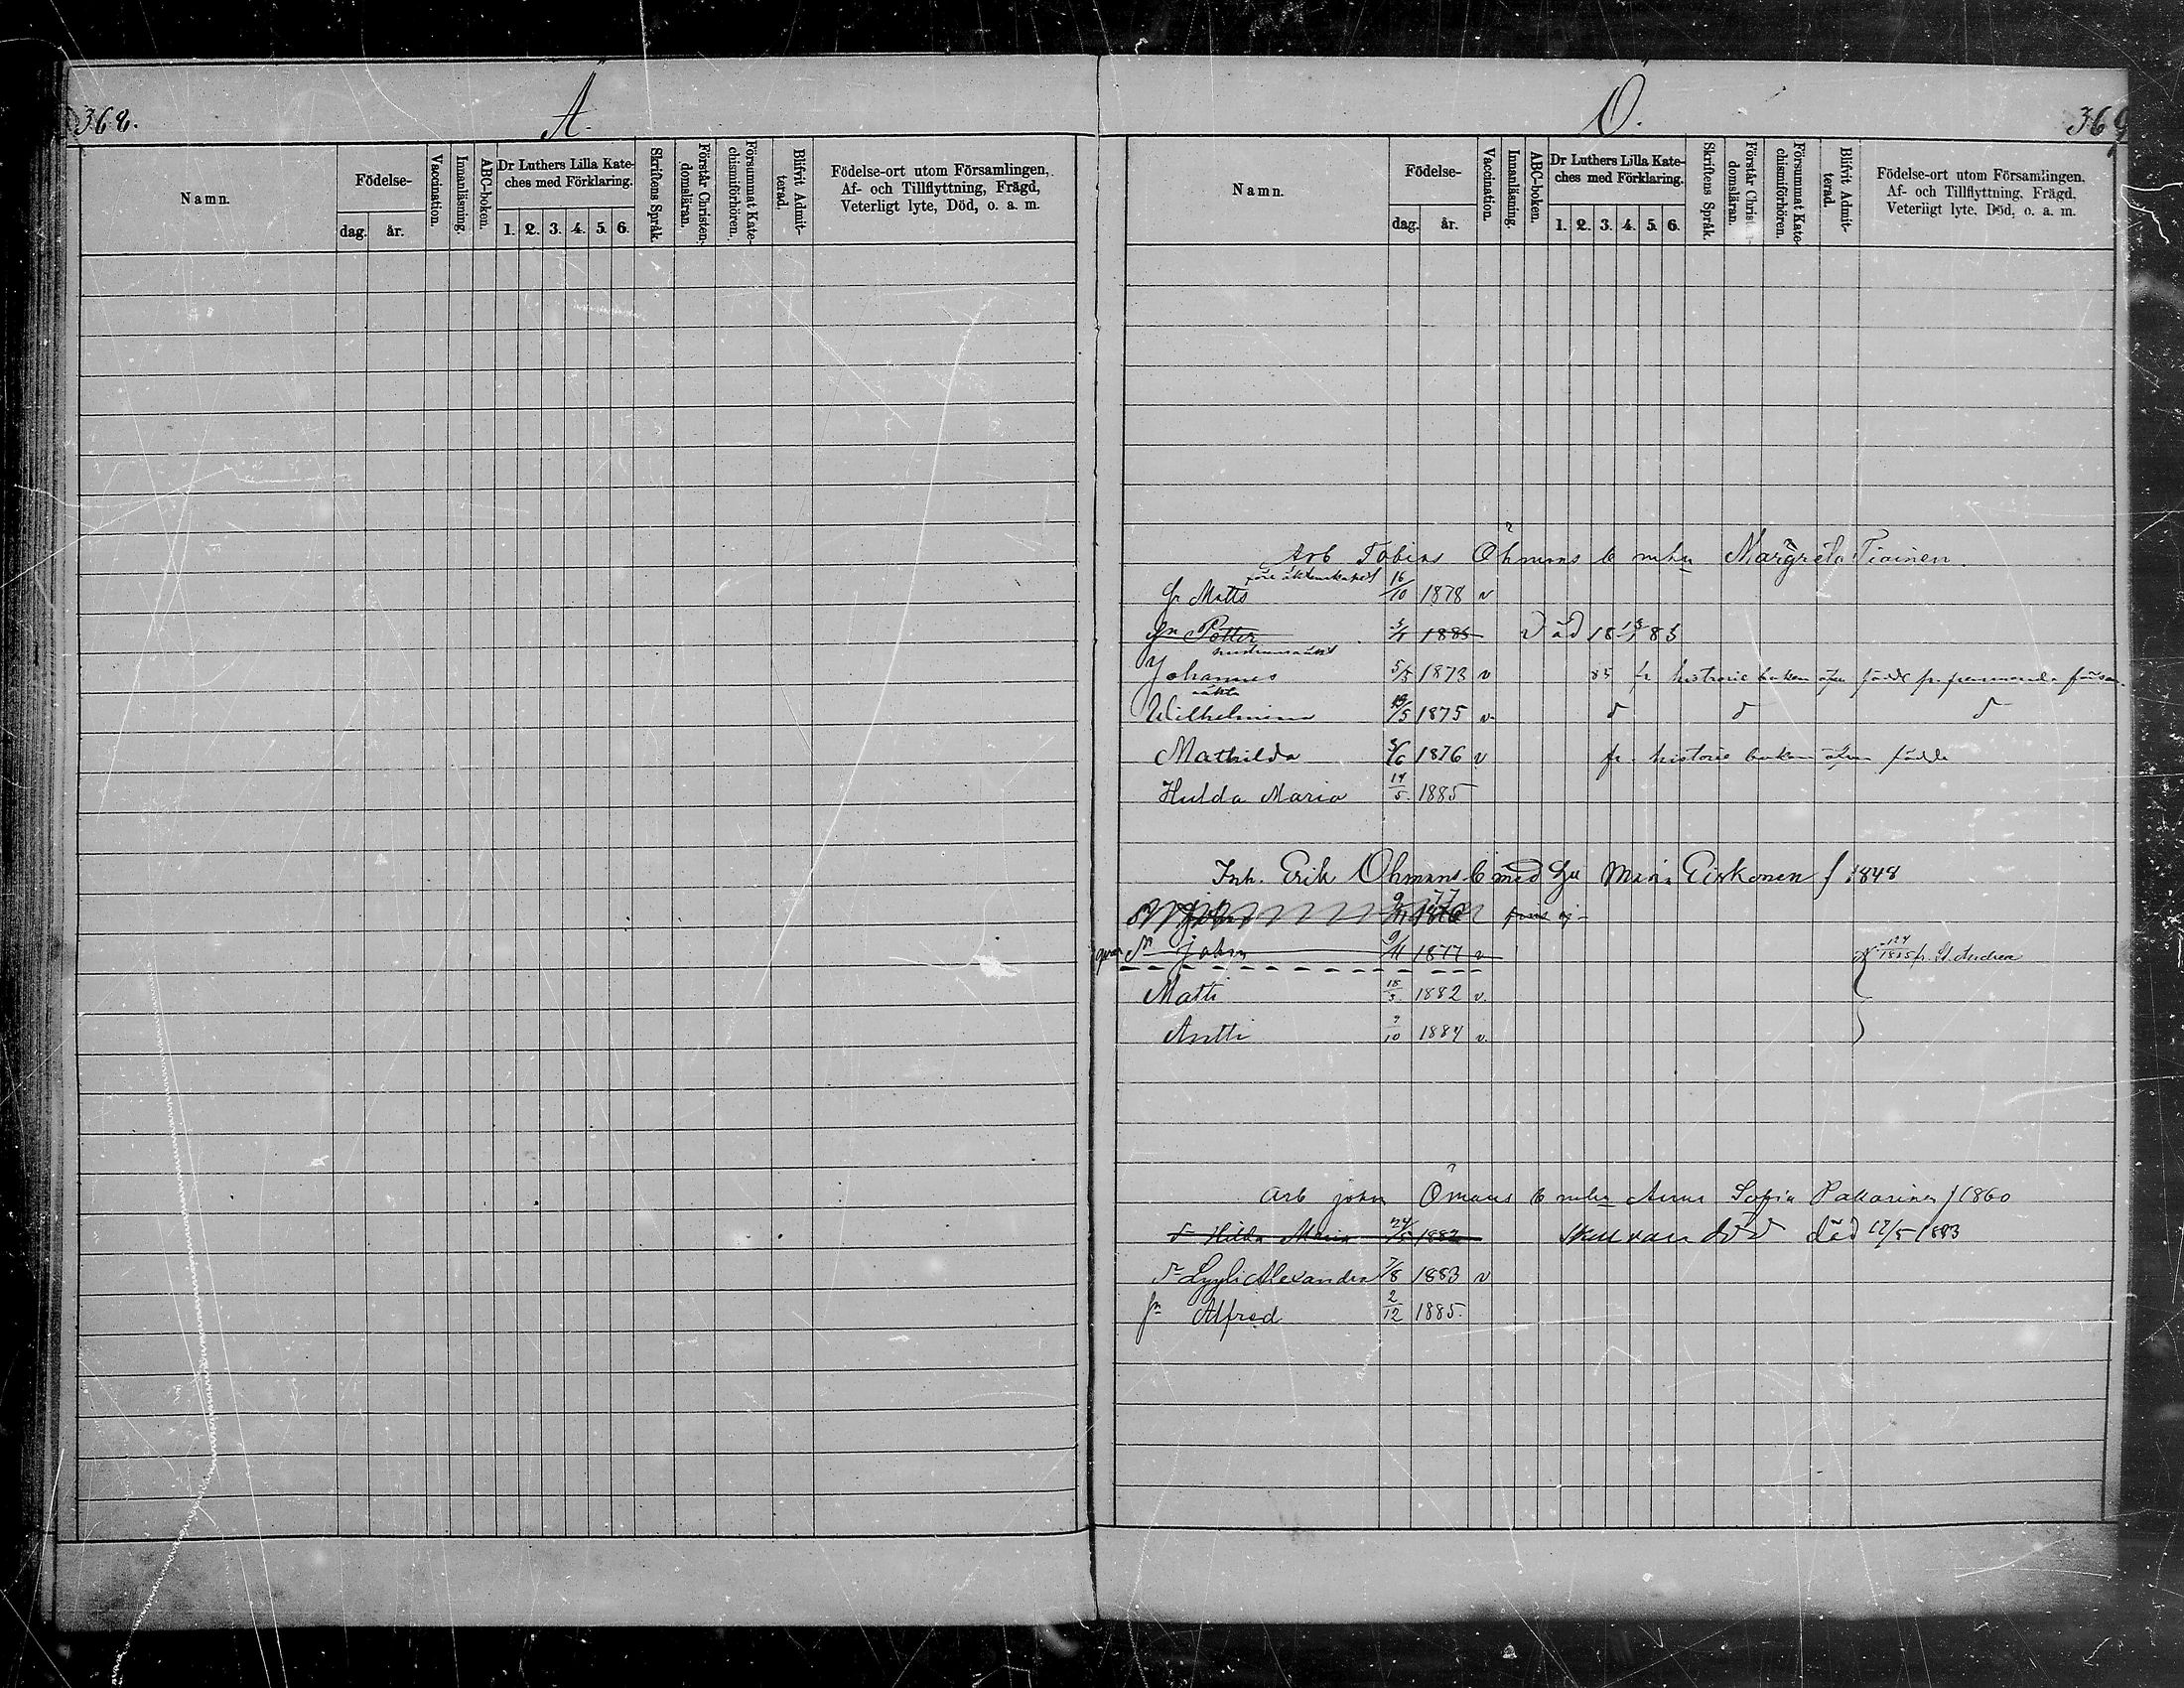 368.
Ä.
Namn.
Födelse-
dag.
år.
Vaccination.
Innanläsning.
ABC-boken.
Dr Luthers Lilla Kate-
ches med Förklaring.
1. 2. 3. 4. 5. 6.
Skriftens Språk.
Förstår Christen-
domsläran.
Försummat Kate-
chismiförhören.
Blifvit Admit-
terad.
Födelse-ort utom Församlingen,
Af- och Tillflyttning, Frägd,
Veterligt lyte, Död, o. a. m.
Ö.
369
Namn.
Födelse-
dag.
år.
Vaccination.
Innanläsning.
ABC-boken.
Dr Luthers Lilla Kate-
ches med Förklaring.
1. 2. 3. 4. 5. 6.
Skriftens Språk.
Förstår Christen-
domsläran.
Försummat Kate-
chismiförhören.
Blifvit Admit-
terad.
Födelse-ort utom Församlingen,
Af- och Tillflyttning, Frägd,
Veterligt lyte, Död, o. a. m.
Arb Tobias Öhmans b mhu Margreta Tiainen
före äktenskapet
Matts 16/10 1878 v
Petter 1885 död
Johannes 5/5 1873 v 85 fr historie boken
äkta
Wilhelmina 1875 v. d d d
Mathilda 1876 v fr. historie boken
Hulda Maria 14/5 1885
Inh. Erik Öhmans b med hu Maria Eiskonen f 1848
John 9/11 ej
John 9/11 1877 v 1885 fr. St Andrea
Matti 18/3 1882 v.
Antti 9/10 1884 v.
Arb John Ömans b mhu Anna Sofia Pakarinen f 1860
Hilda Maria 24/5 1882 Skall vara död död 12/5 1883
Lyyli Alexandra 7/8 1883 v
Alfred 2/12 1885.